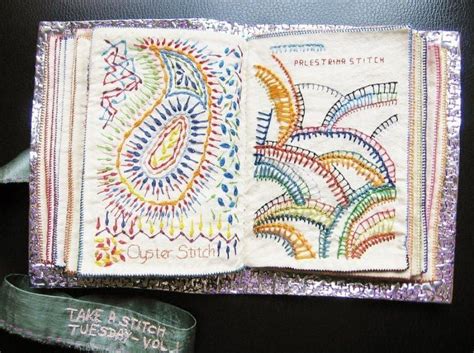 Oyster Stitch
PALESTRINA STITCH
TAKE A STITCH
TUESDAY-VOL